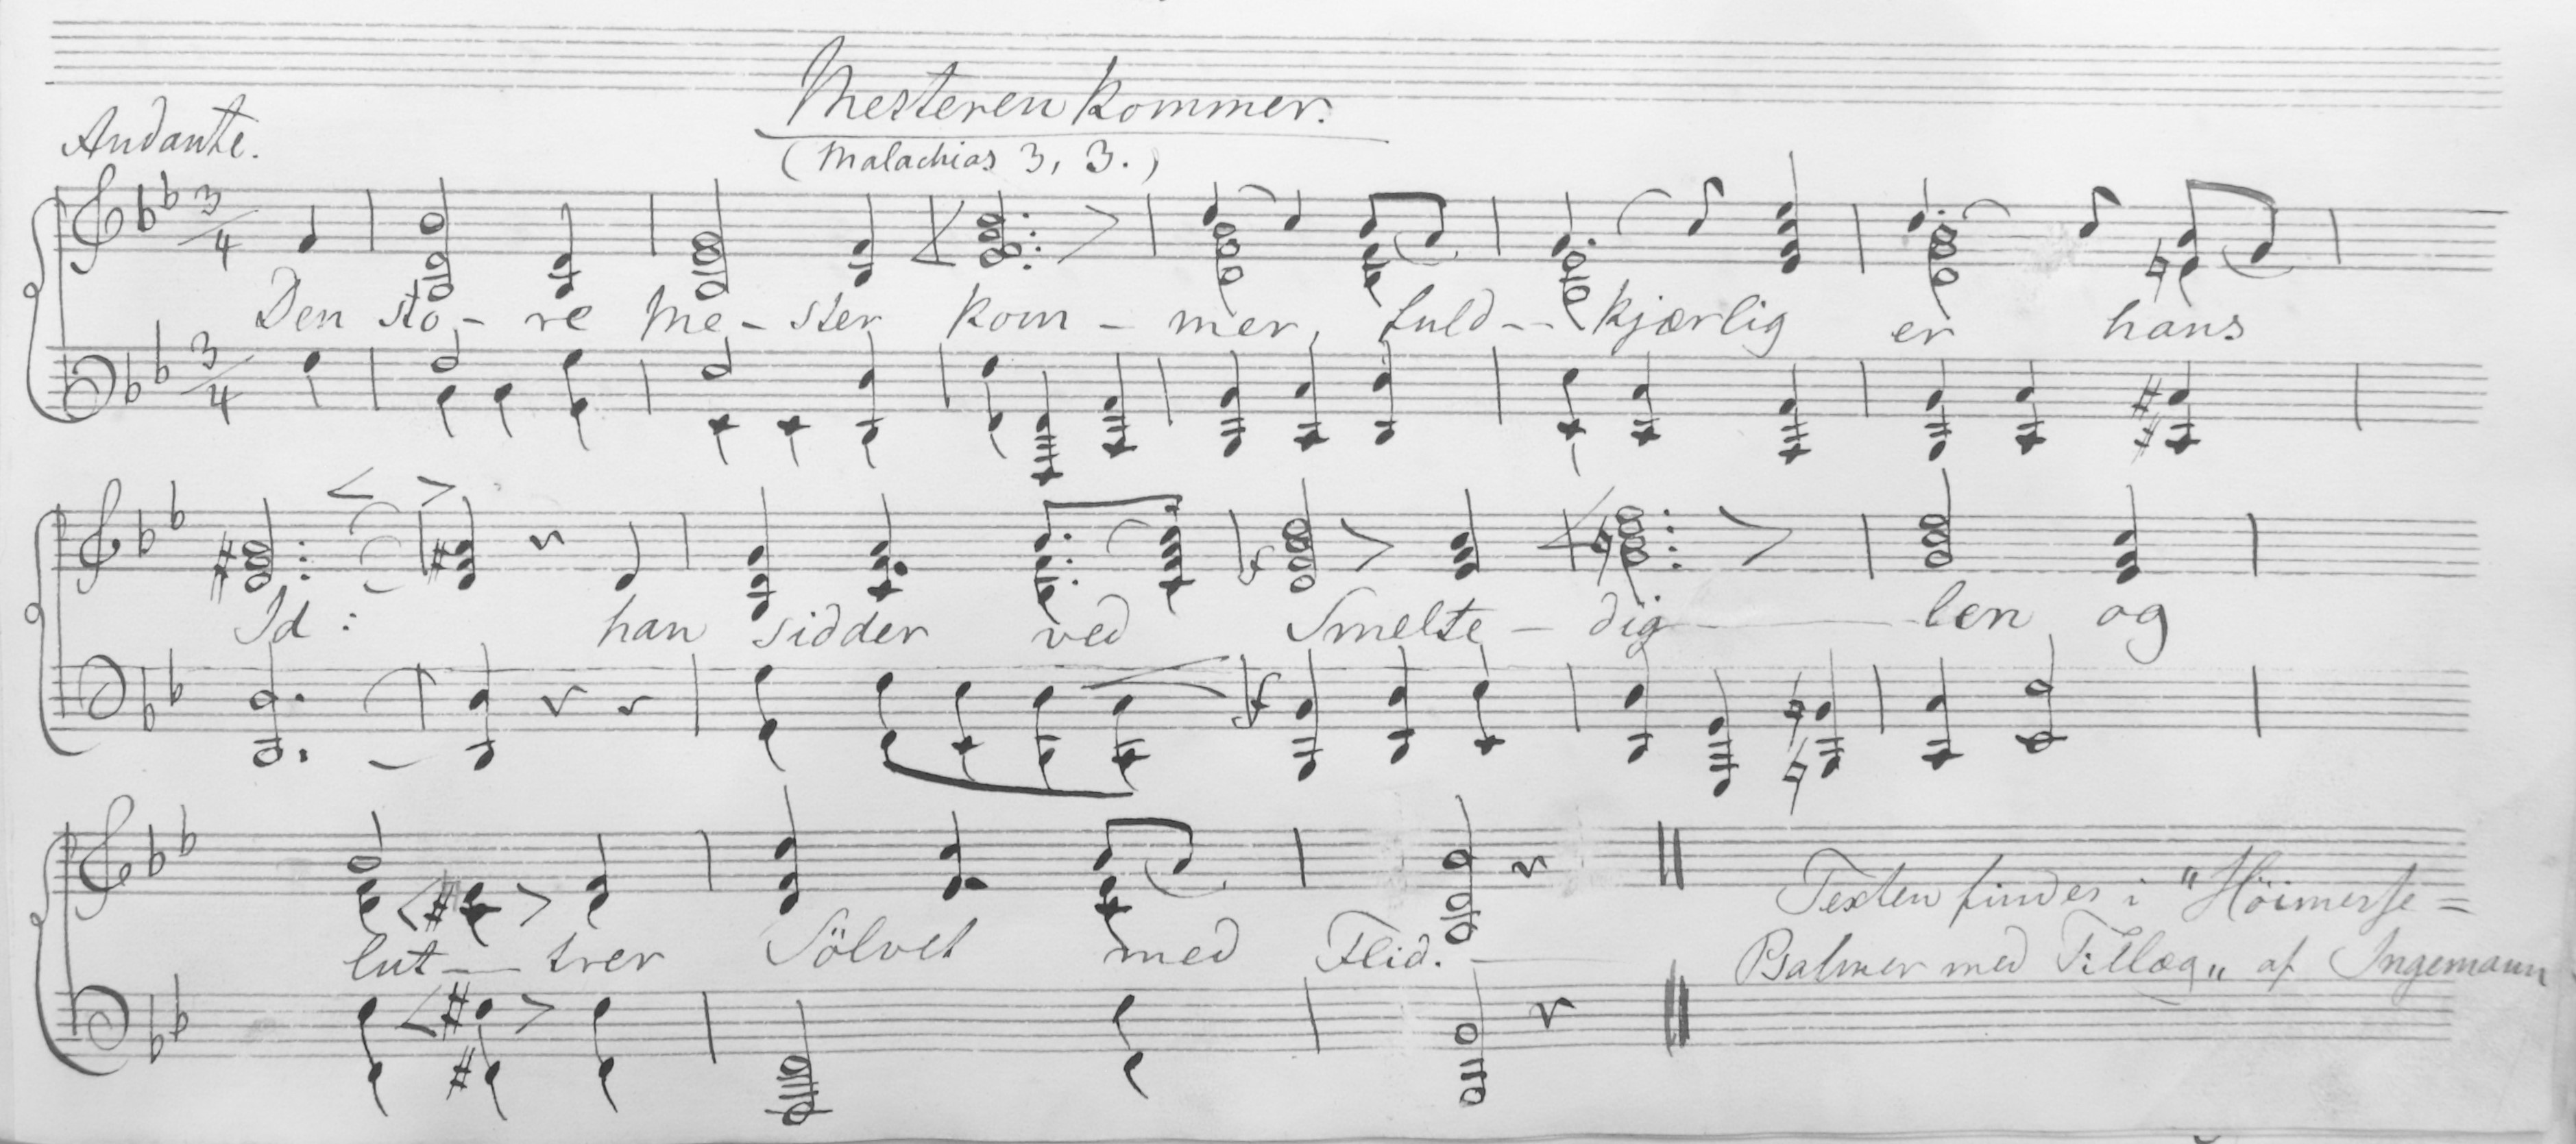 Mesteren kommer.
Andante.
(Malachias 3, 3.)
3/4
Den sto- re Me- ster kom- mer, fuld-- kjærlig er hans
3/4
Id: han sidder ved Smelte- dig- len og
f
f
lut- trer Sölvet med Flid.
Texten findes i "Höimesse=
Psalmer med Tillæg„ af Ingemann